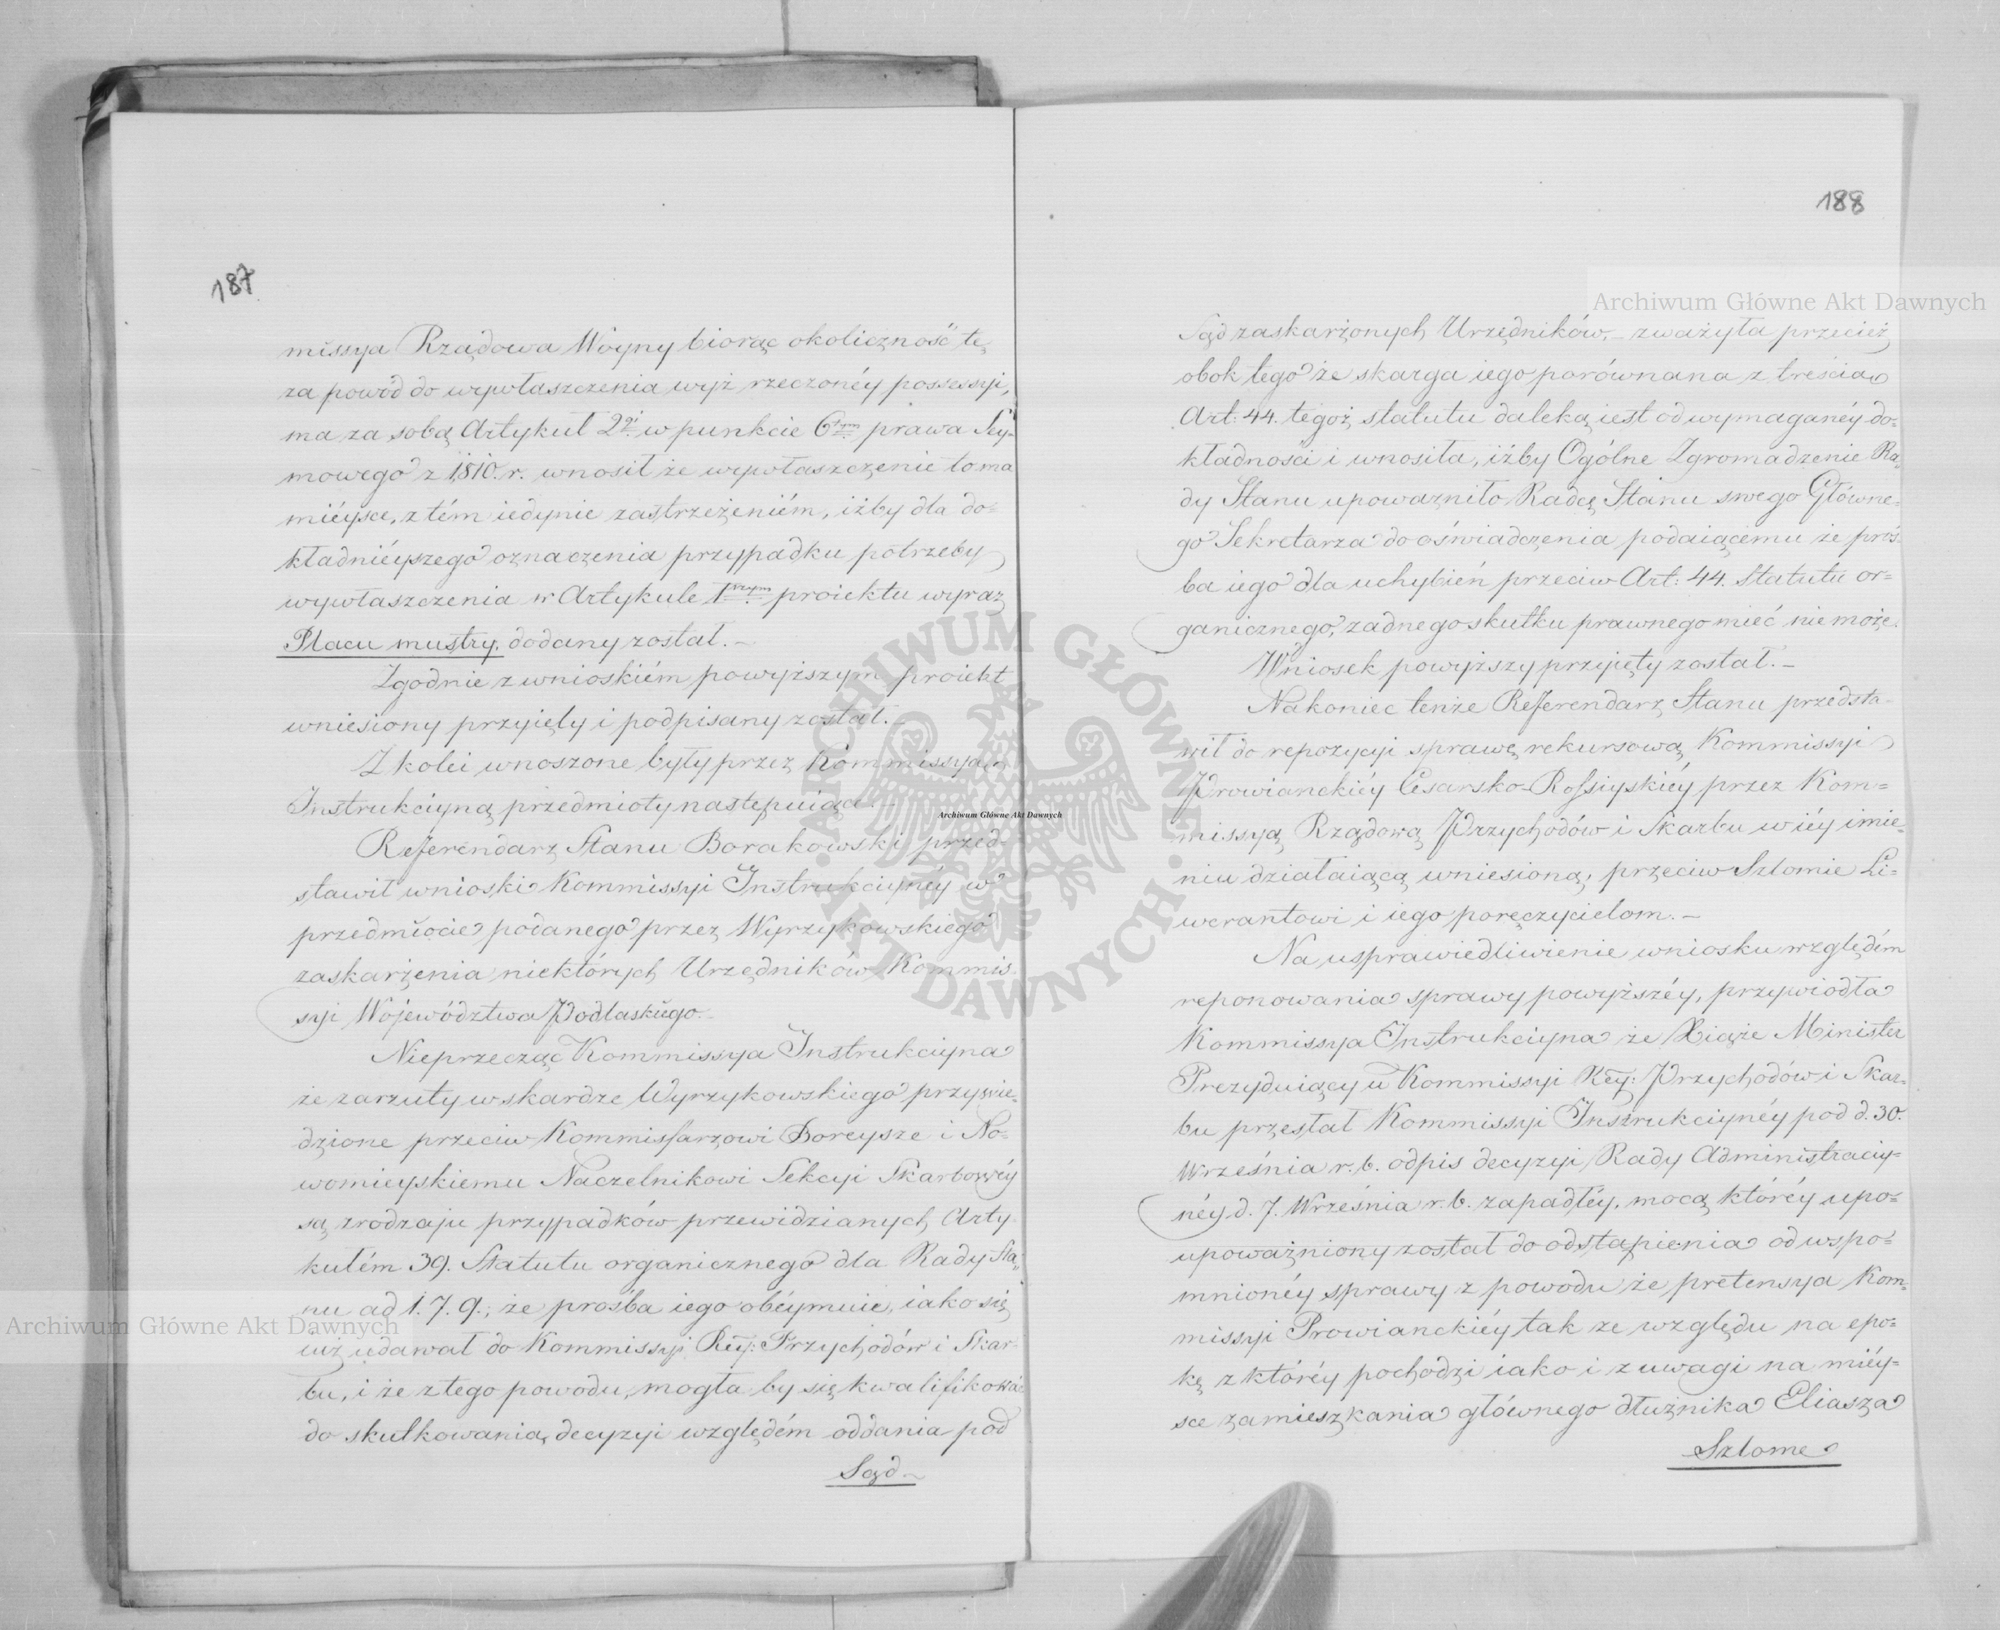 187
missya Rządowa Woyny biorąc okoliczność tę
za powód do wywłaszczenia wyż rzeczonéy possessyi,
ma za sobą Artykuł 2gi w punkcie 6tym prawa Sey-
mowego z 1810. r. wnosił że wywłaszczenie to ma
miéysce, z tém iedynie zastrzeżeniém, iżby dla do-
kładniéyszego oznaczenia przypadku potrzeby
wywłaszczenia w Artykule 1wszym proiektu wyraz
Placu mustry, dodany został. —
Zgodnie z wnioskiém powyższym proiekt
wniesiony przyięty i podpisany został. —
Z kolei wnoszone były przez Kommissyą
Instrukcyiną przedmioty następuiące. —
Referendarz Stanu Borakowski przed-
stawił wnioski Kommissyi Instrukcyinéy w
przedmiocie podanego przez Wyrzykowskiego
zaskarżenia niektórych Urzędników Kommis-
syi Województwa Podlaskiego. —
Nieprzecząc Kommissya Instrukcyina
że zarzuty w skardze Wyrzykowskiego przywie-
dzione przeciw Kommissarzowi Boreysze i No-
womieyskiemu Naczelnikowi Sekcyi Skarbowéy
są z rodzaju przypadków przewidzianych Arty-
kułém 39. Statutu organicznego dla Rady Sta-
nu ad 1. 7. 9., że prośba iego obéymuie, iako się
iuż udawał do Kommissyi Rzą: Przychodów i Skar-
bu, i że z tego powodu, mogła by się kwalifikować
do skutkowania, decyzyi względém oddania pod
Sąd —
188
Sąd zaskarżonych Urzędników, — zważyła przecież
obok tego że skarga iego porównana z treścią
Art: 44. tegoż statutu daleką iest od wymaganéy do-
kładności i wnosiła, iżby Ogólne Zgromadzenie Ra-
dy Stanu upoważniło Radcę Stanu swego Główne-
go Sekretarza do oświadczenia podaiącemu że proś-
ba iego dla uchybień przeciw Art: 44. Statutu or-
ganicznego, żadnego skutku prawnego mieć nie może.
Wniosek powyższy przyięty został. —
Nakoniec tenże Referendarz Stanu przedsta-
wił do repozycyi sprawę rekursową Kommissyi
Prowianckiéy Cesarsko-Rossyiskiéy przez Kom-
missyą Rządową Przychodów i Skarbu w iéy imie-
niu działaiącą wniesioną, przeciw Szlomie Li-
werantowi i iego poręczycielom. —
Na usprawiedliwienie wniosku względém
reponowania sprawy powyższéy, przywiodła
Kommissya Instrukcyina że Xiąże Minister
Prezyduiący w Kommissyi Rzą: Przychodów i Skar-
bu przesłał Kommissyi Instrukcyinéy pod d. 30.
Września r. b. odpis decyzyi Rady Administracyi-
néy d. 7. Września r. b. zapadłéy, mocą któréy upo-
upoważniony został do odstąpienia od wspo-
mnionéy sprawy z powodu że pretensya Kom-
missyi Prowianckiéy tak ze względu na epo-
kę z któréy pochodzi iako i z uwagi na miéy-
sce zamieszkania głównego dłużnika Eliasza
Szlome
Archiwum Główne Akt Dawnych
Archiwum Główne Akt Dawnych
Archiwum Główne Akt Dawnych
ARCHIWUM GŁÓWNE · AKT DAWNYCH ·